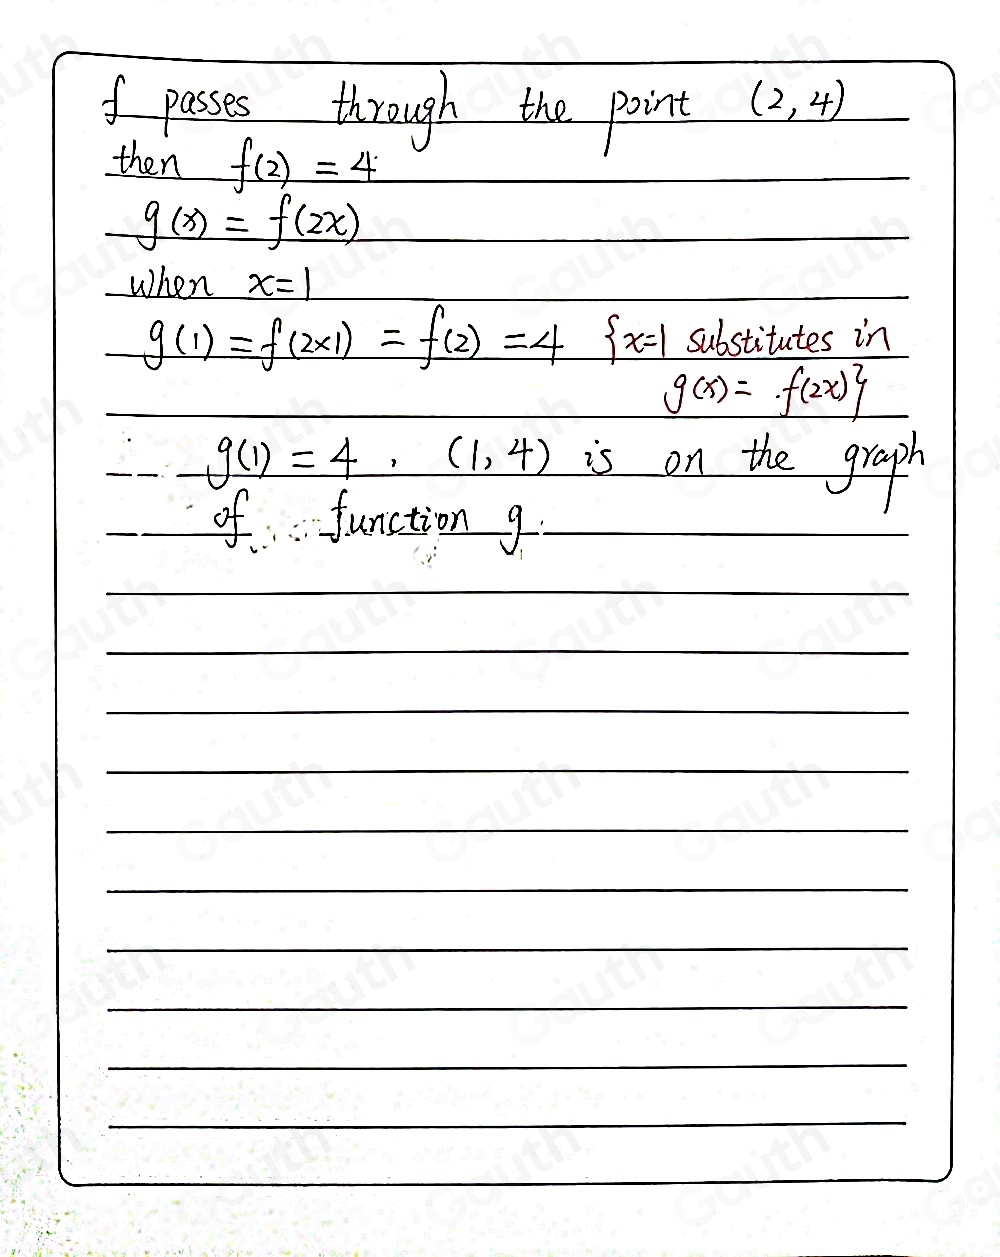 f passes through the point (2,4)
then f(2) = 4
g(x) = f(2x)
when x=1
g(1) = f(2×1) = f(2) = 4 {x=1 substitutes in
g(x) = f(2x)}
g(1) = 4, (1,4) is on the graph
of function g.